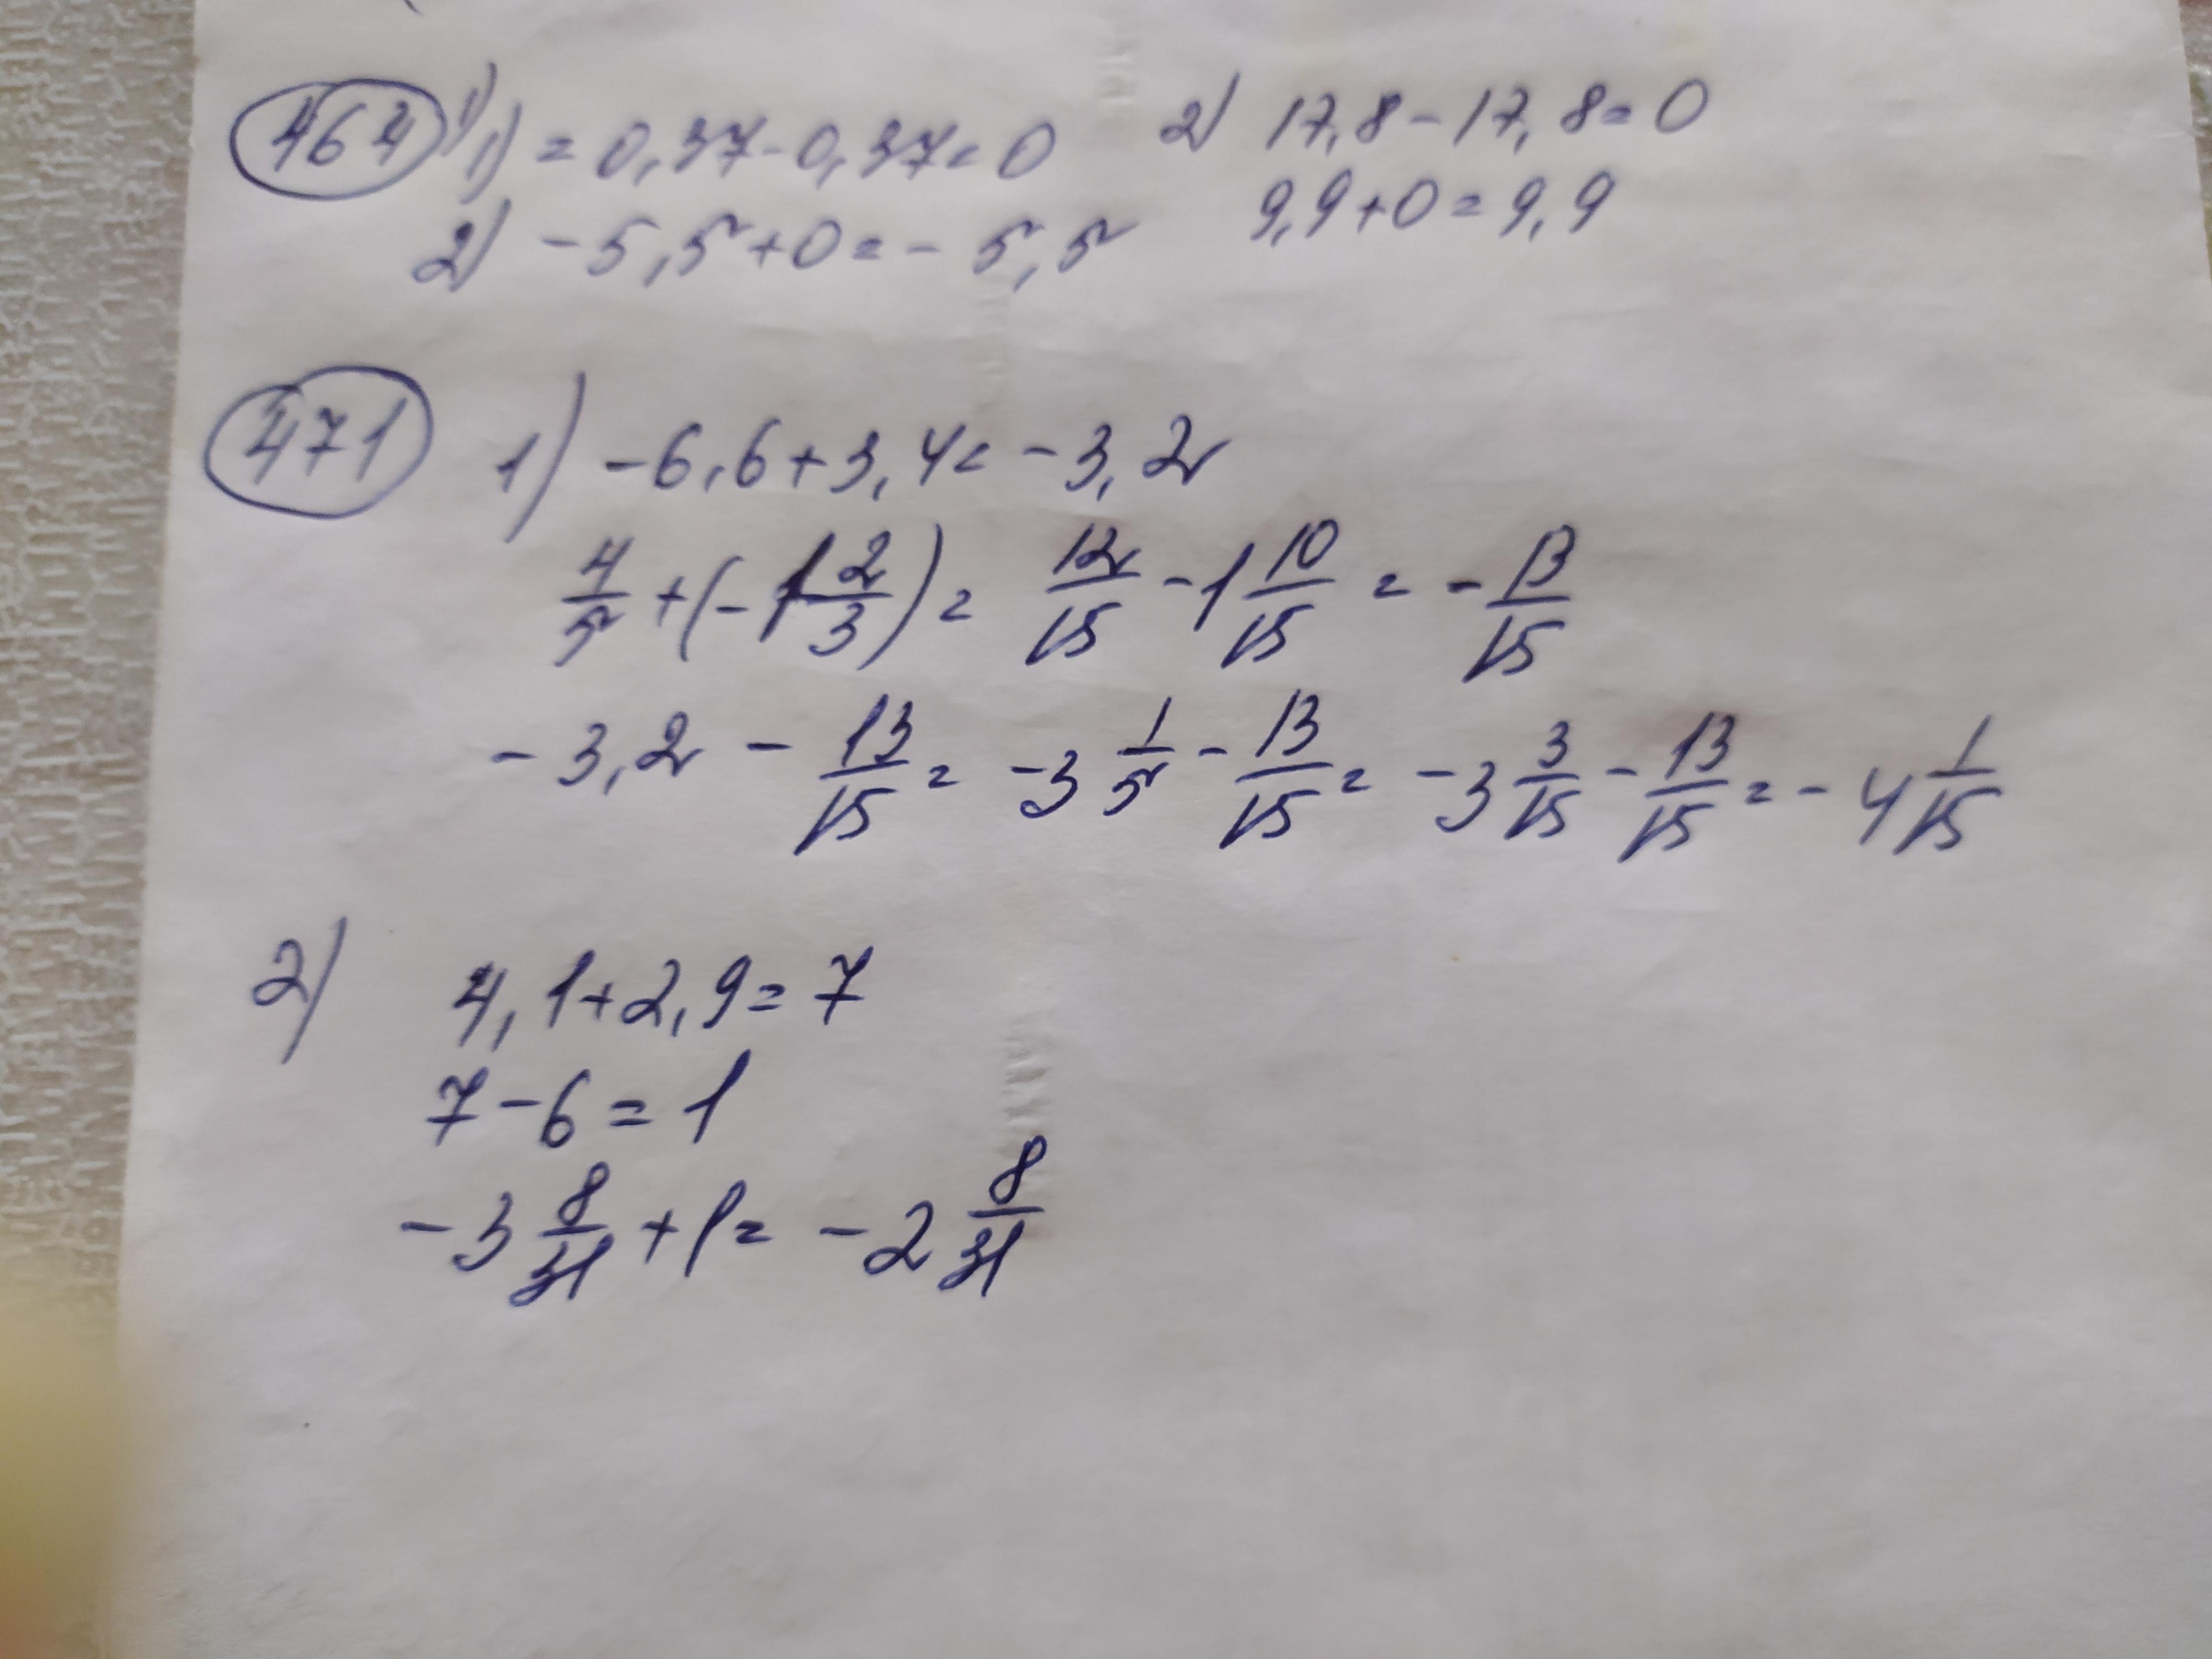 464 1) 1) = 0,37 - 0,37 = 0 2) 17,8 - 17,8 = 0
2) -5,5 + 0 = -5,5 9,9 + 0 = 9,9
471 1) -6,6 + 3,4 = -3,2
4/5 + (-1 2/3) = 12/15 - 1 10/15 = - 13/15
-3,2 - 13/15 = -3 1/5 - 13/15 = -3 3/15 - 13/15 = -4 1/15
2) 4,1 + 2,9 = 7
7 - 6 = 1
-3 8/31 + 1 = -2 8/31